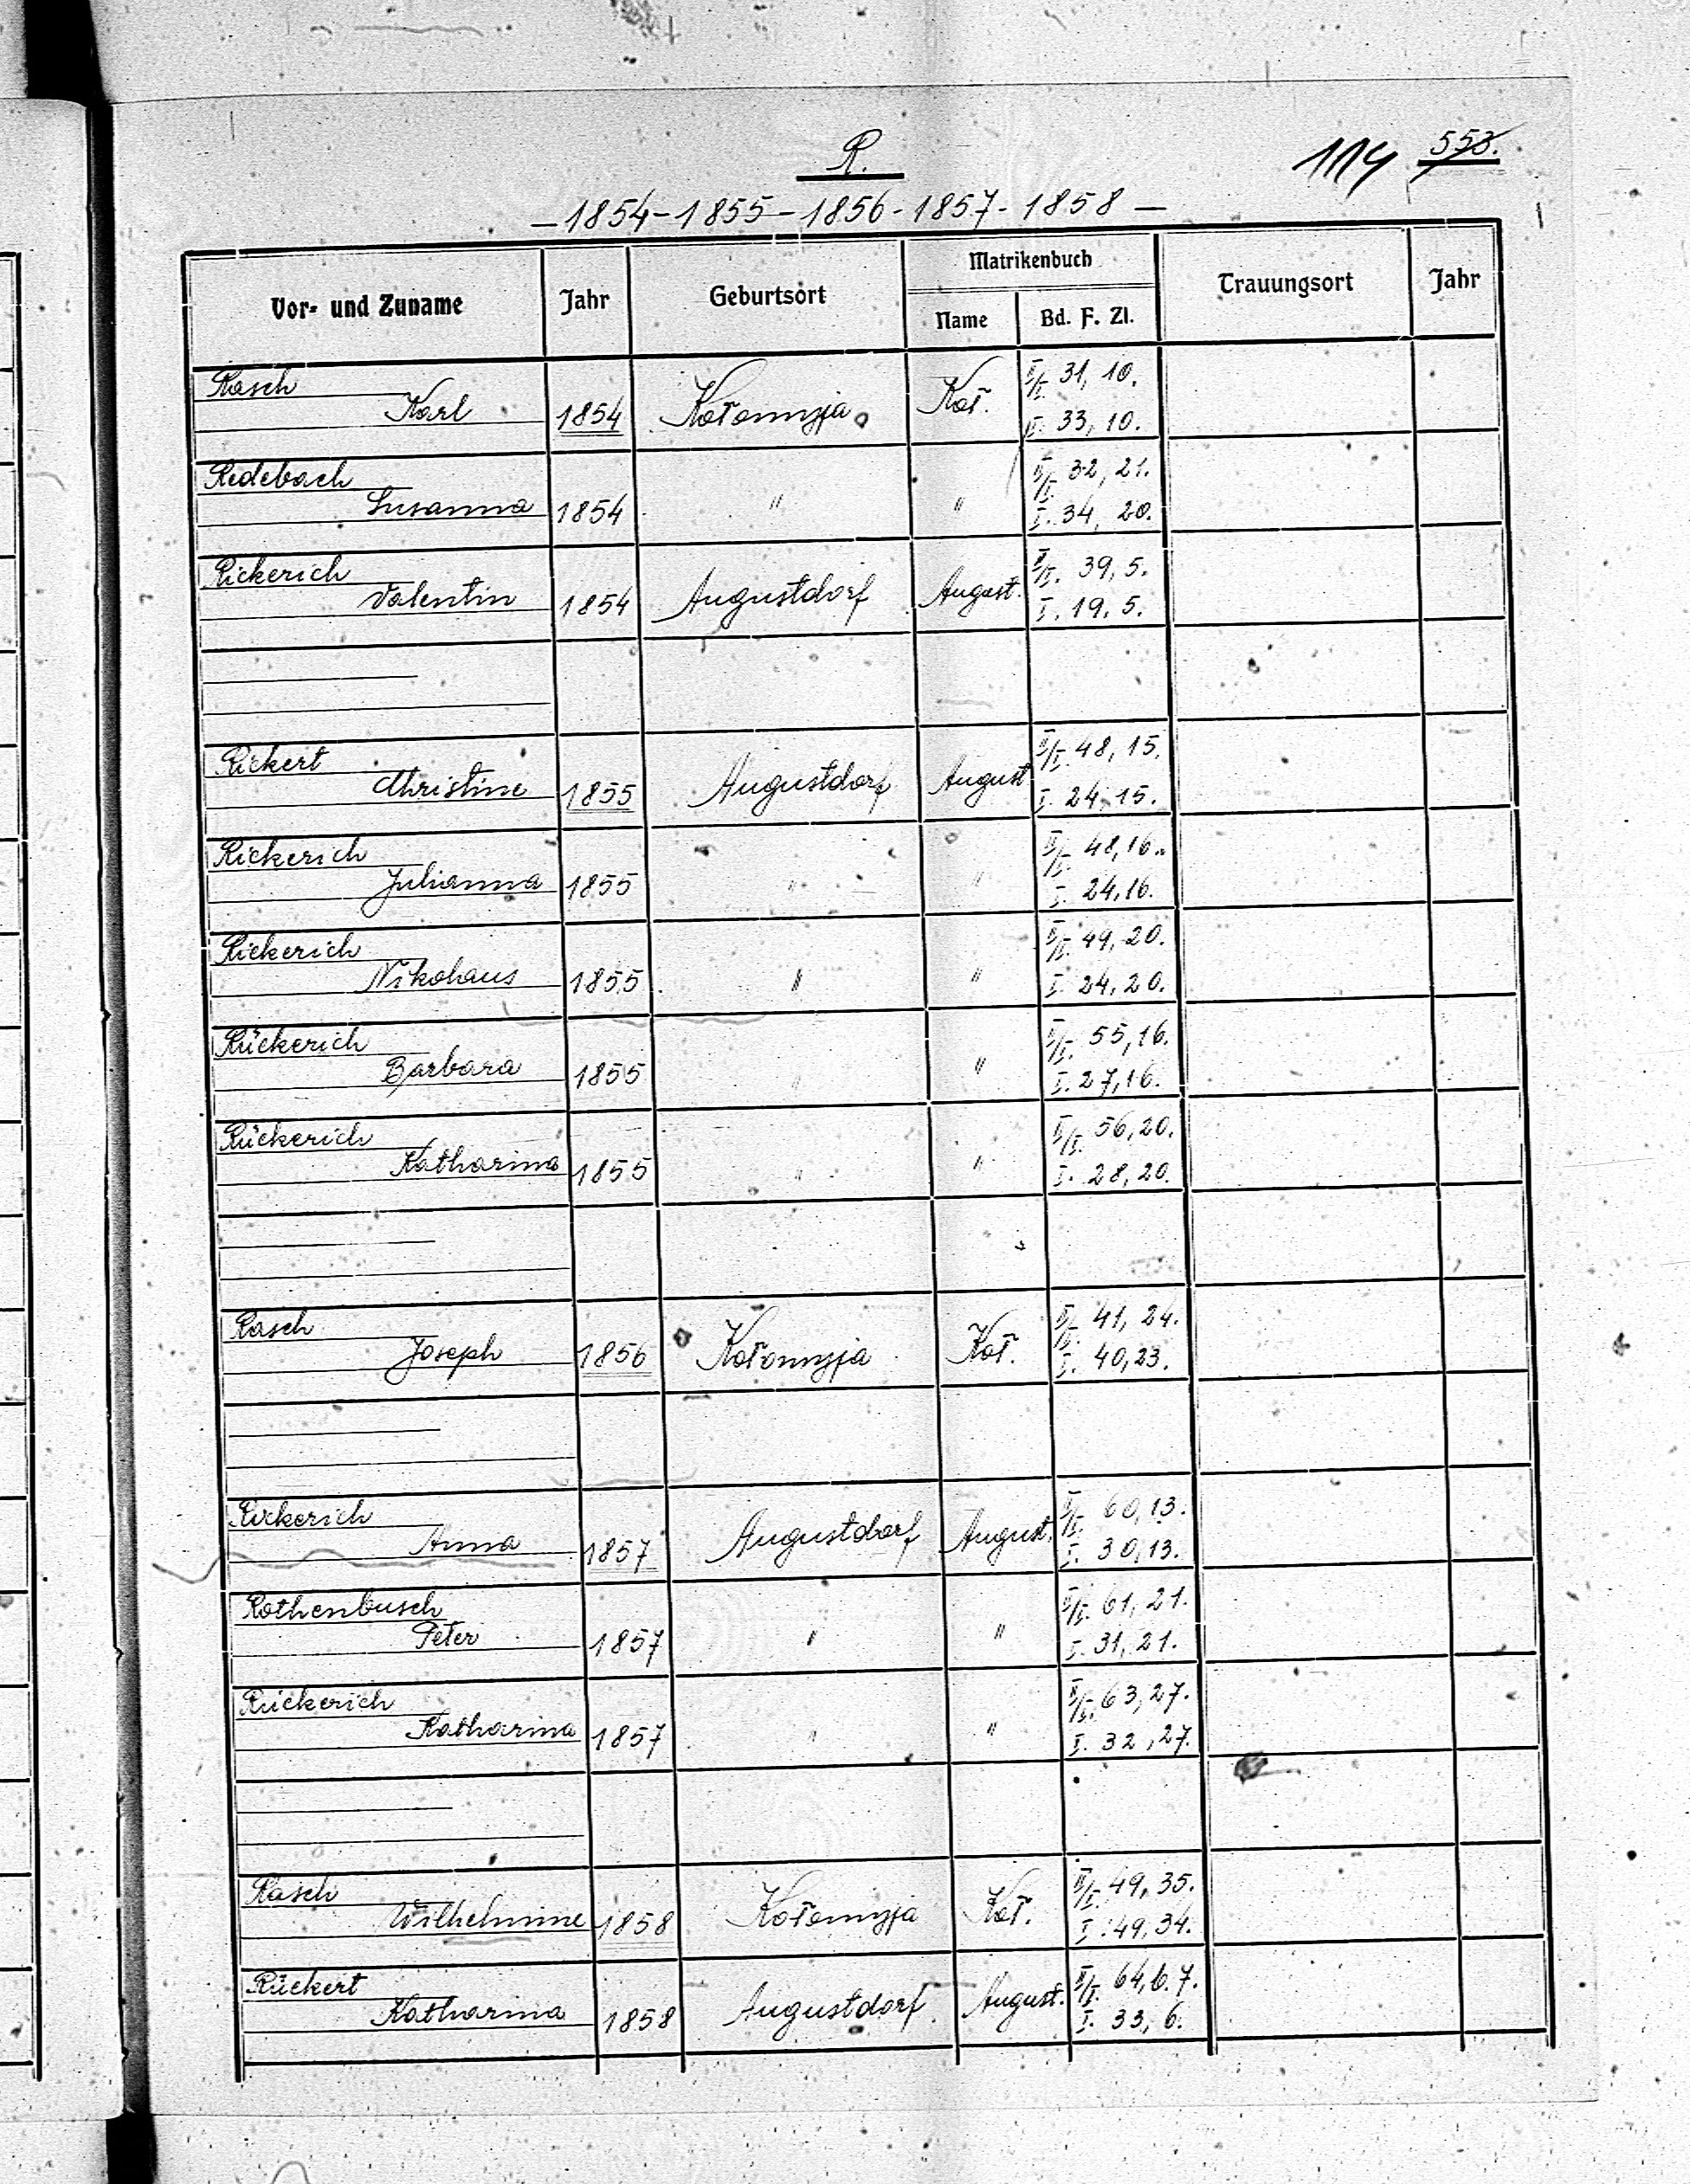 R.
114 553.
— 1854 - 1855 - 1856 - 1857 - 1858 —
Vor- und Zuname Jahr Geburtsort Matrikenbuch Trauungsort Jahr
Name Bd. F. Zl.
Rasch II/I. 31, 10.
Karl 1854 Kołomyja Koł. I. 33, 10.
Redebach II/I. 32, 21.
Susanna 1854 " " I. 34, 20.
Rickerich II/I. 39, 5.
Valentin 1854 Augustdorf August. I. 19, 5.
Rickert II/I. 48, 15.
Christine 1855 Augustdorf August I. 24, 15.
Rickerich II/I. 48, 16.
Julianna 1855 " " I. 24, 16.
Rickerich II/I. 49, 20.
Nikolaus 1855 " " I. 24, 20.
Rückerich II/I. 55, 16.
Barbara 1855 " " I. 27, 16.
Rückerich II/I. 56, 20.
Katharina 1855 " " I. 28, 20.
Rasch II/I. 41, 24.
Joseph 1856 Kołomyja Koł. I. 40, 23.
Rückerich II/I. 60, 13.
Anna 1857 Augustdorf August. I. 30, 13.
Rothenbusch II/I. 61, 21.
Peter 1857 " " I. 31, 21.
Rückerich II/I. 63, 27.
Katharina 1857 " " I. 32, 27.
Rasch II/I. 49, 35.
Wilhelmine 1858 Kołomyja Koł. I. 49, 34.
Rückert II/I. 64, 6. 7.
Katharina 1858 Augustdorf. August. I. 33, 6.